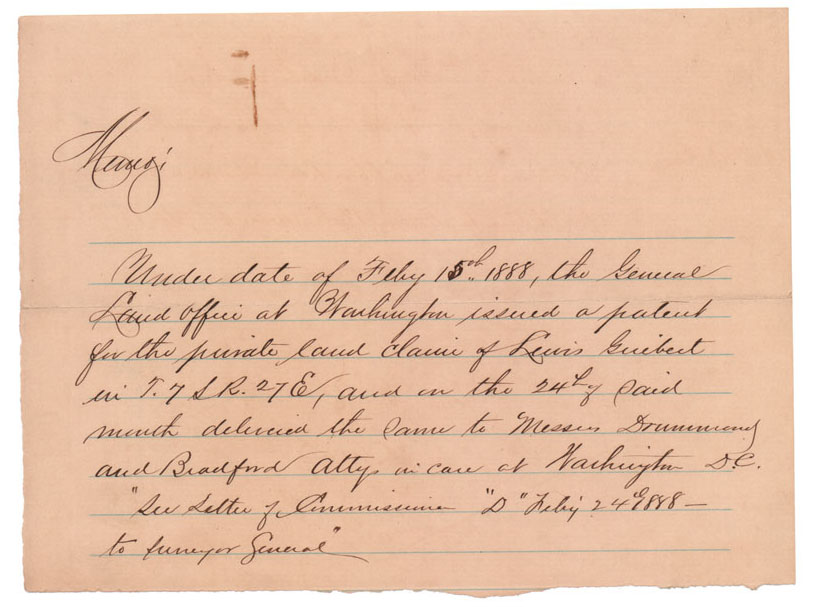 Memo;
Under date of Feby 15th. 1888, the General
Land Office at Washington issued a patent
for the private land claim of Lewis Guibert
in T. 7 S R. 27 E, and on the 24th of said
month delivered the same to Messrs Drummond
and Bradford Attys in case at Washington D.C.
"See Letter of Commissioner "D" Feby 24th 1888 —
to Surveyor General"